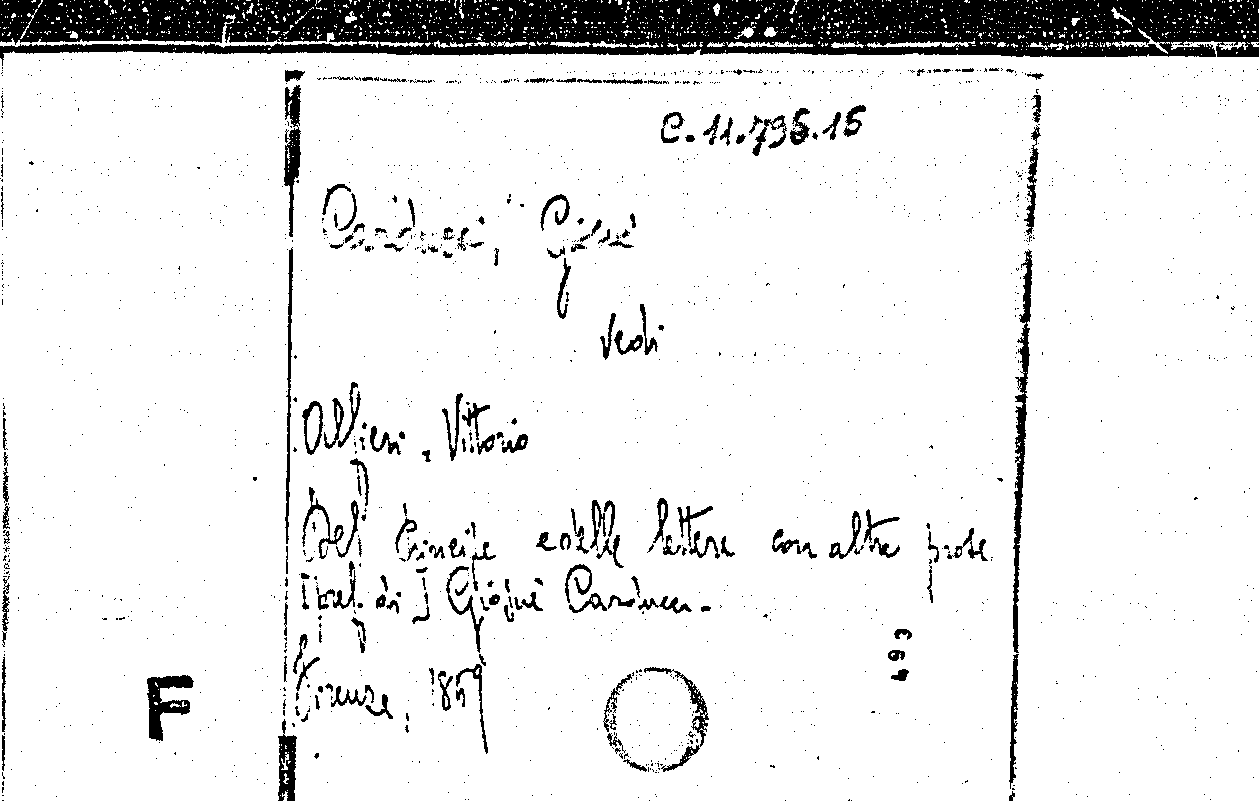 C.11.795.15
Carducci, Giosuè
vedi
Alfieri, Vittorio
Del Principe e delle lettere con altre prose
[pref. di] Giosuè Carducci.
Firenze, 1859
493
F